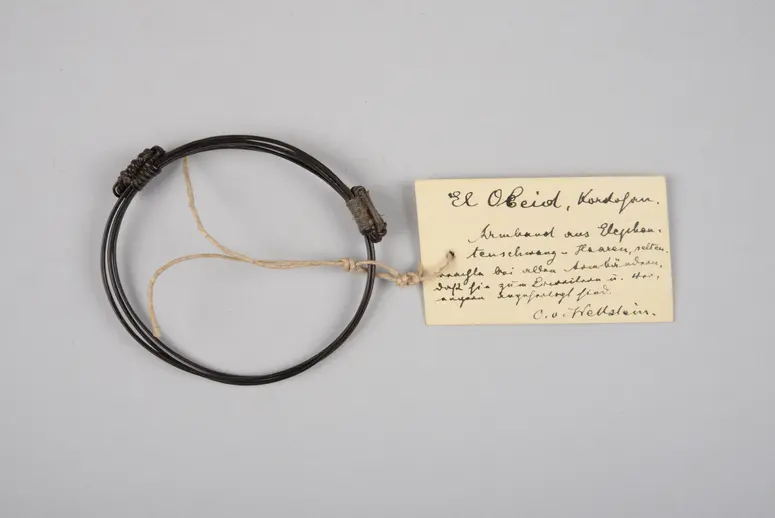 El Obeid, Kordofan.
Armband aus Elephan-
tenschwanz-Haaren, selten.
bei allen Armbändern,
daß sie zum Erweitern u.
angefertigt sind.
C. v. Wettstein.